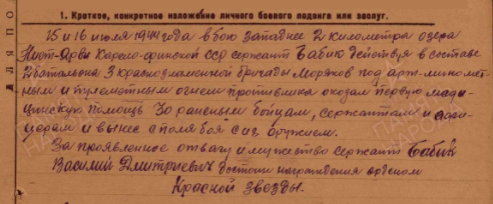 1. Краткое, конкретное изложение личного боевого подвига или заслуг.
15 и 16 июля 1944 года в бою западнее 2 километра озера
Ярви Карело-финской ССР сержант Бабик действуя в составе
2 батальона 3 краснознаменной бригады Моряков под арт-миномет-
ным и пулеметным огнем противника оказал первую меди-
цинскую помощь 30 раненым бойцам, сержантам и офи-
церам и вынес с поля боя с их оружием.
За проявленное отвагу и мужество сержант Бабик
Василий Дмитриевич достоин награждения орденом
Красной звезды.